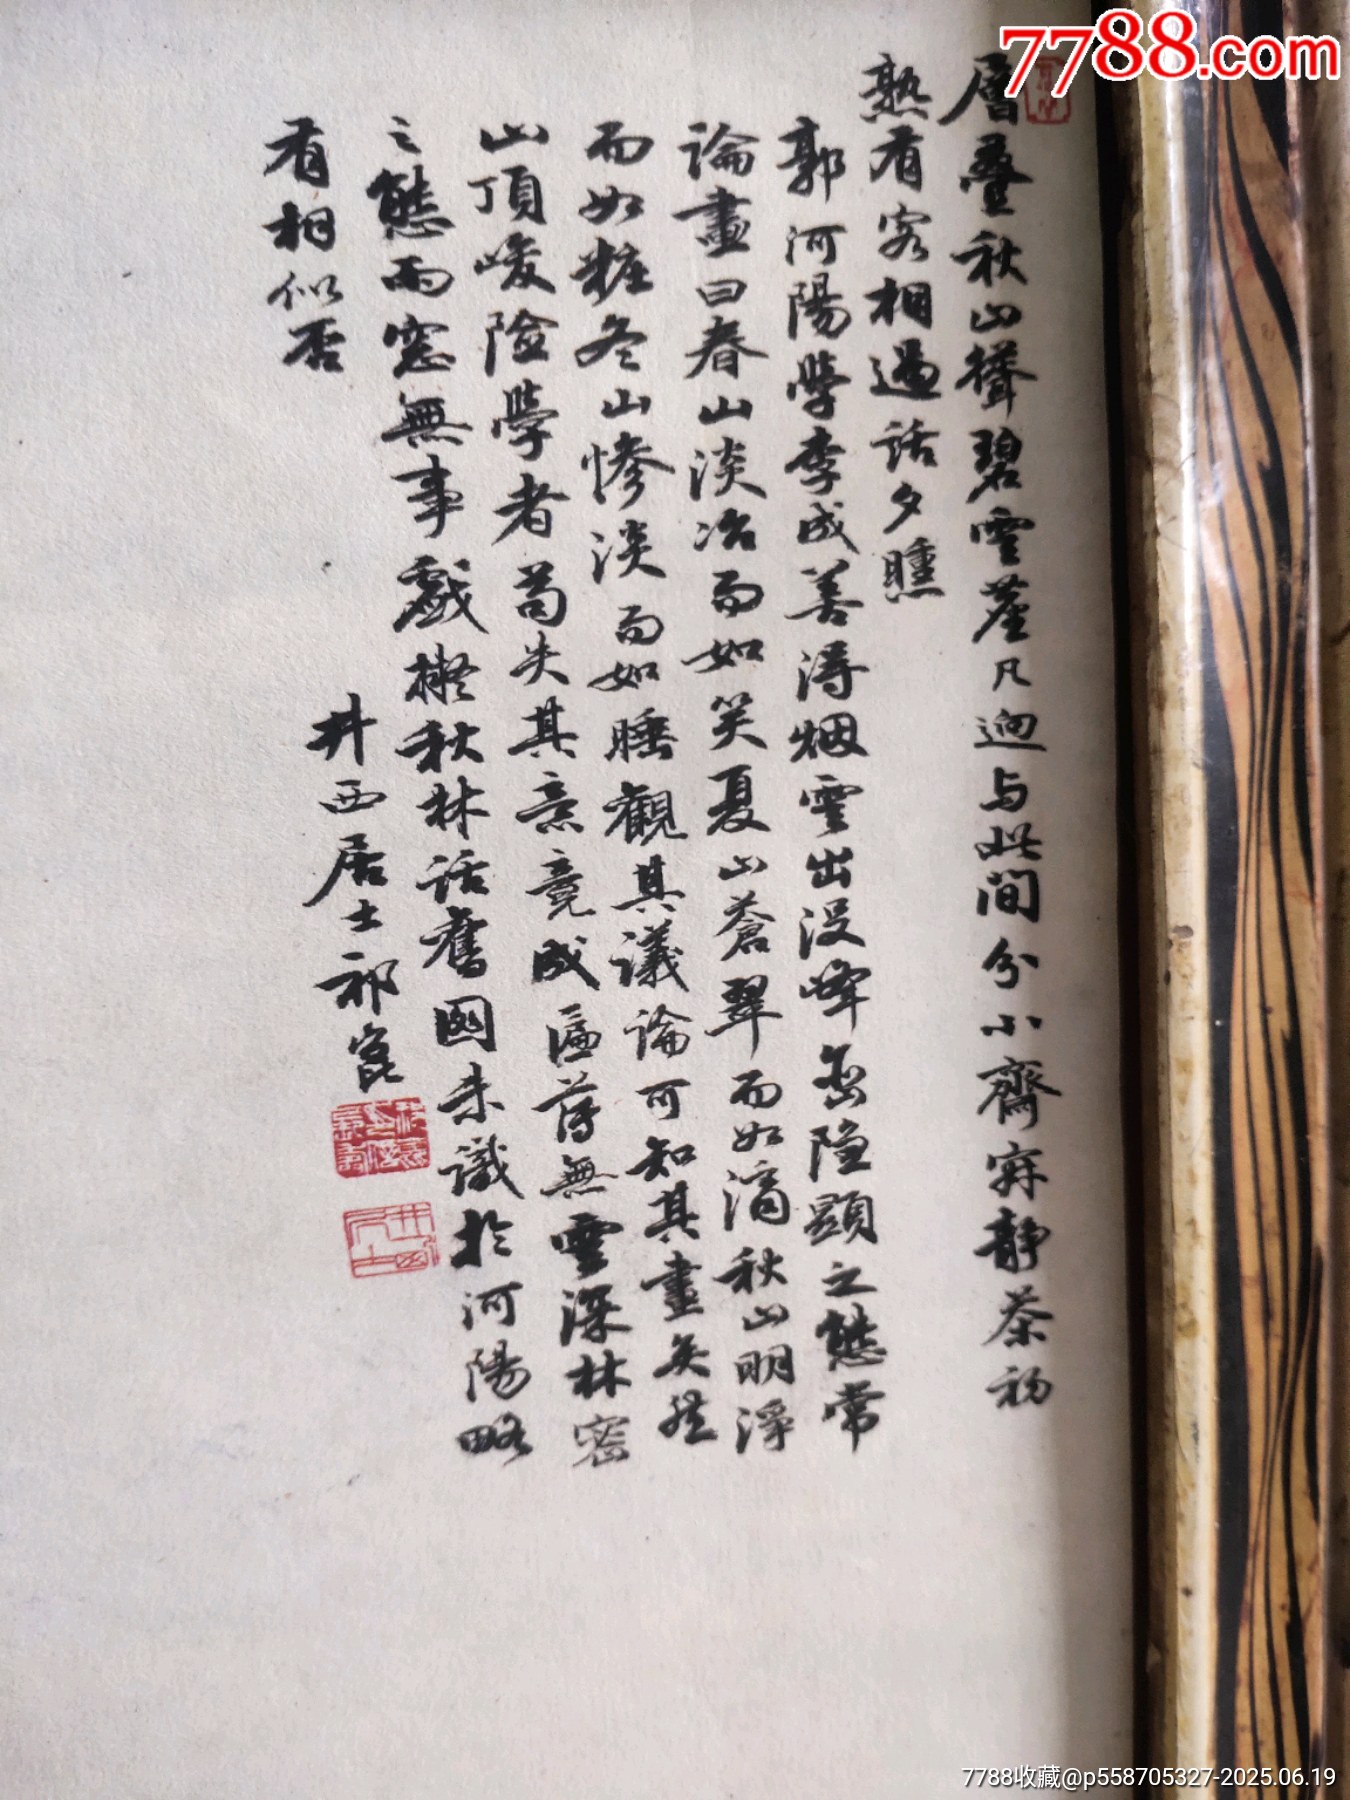 7788.com
層疊秋山聳碧雲塵凡迥与此間分小齋寂靜茶初
熟有客相過話夕曛
郭河陽學李成善得烟雲出沒峰巒隐顯之態常
論畫曰春山淡冶而如笑夏山蒼翠而如滴秋山明淨
而如粧冬山慘淡而如睡觀其議論可知其畫矣然
山頂峻險學者苟失其意竟成匾薄無雲深林密
之態雨窓無事戲擬秋林話舊圖未識於河陽略
有相似否
井西居士祁崑
7788收藏@p558705327-2025.06.19